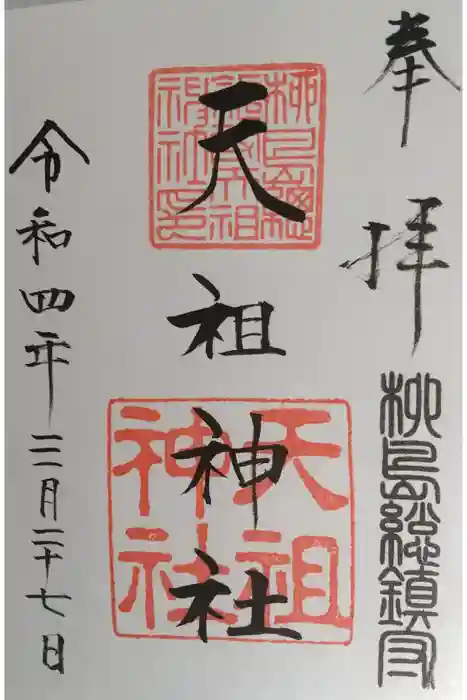 奉拝
柳島總鎮守
天祖神社
柳島總鎮守天祖神社印
天祖神社
令和四年三月二十七日